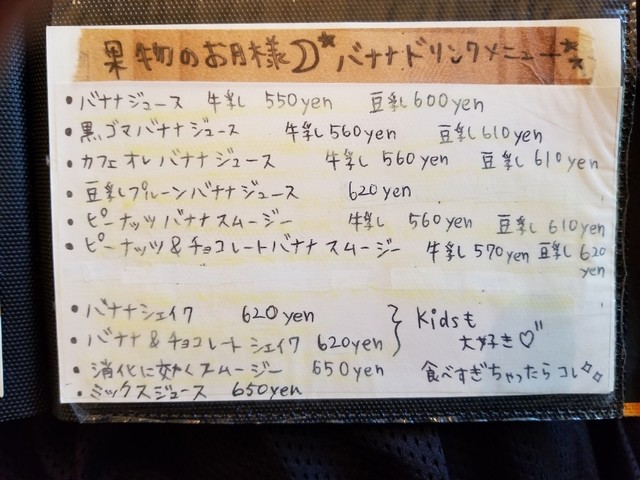 果物のお月様☽★バナナドリンクメニュー★★
• バナナジュース 牛乳 550yen 豆乳 600yen
• 黒ゴマバナナジュース 牛乳 560yen 豆乳 610yen
• カフェオレバナナジュース 牛乳 560yen 豆乳 610yen
• 豆乳プルーンバナナジュース 620yen
• ピーナッツバナナスムージー 牛乳 560yen 豆乳 610yen
• ピーナッツ&チョコレートバナナスムージー 牛乳 570yen 豆乳 620
yen
• バナナシェイク 620yen
• バナナ&チョコレートシェイク 620yen
Kidsも
大好き♡
• 消化に効くスムージー 650yen 食べすぎちゃったらコレ✧✧
• ミックスジュース 650yen